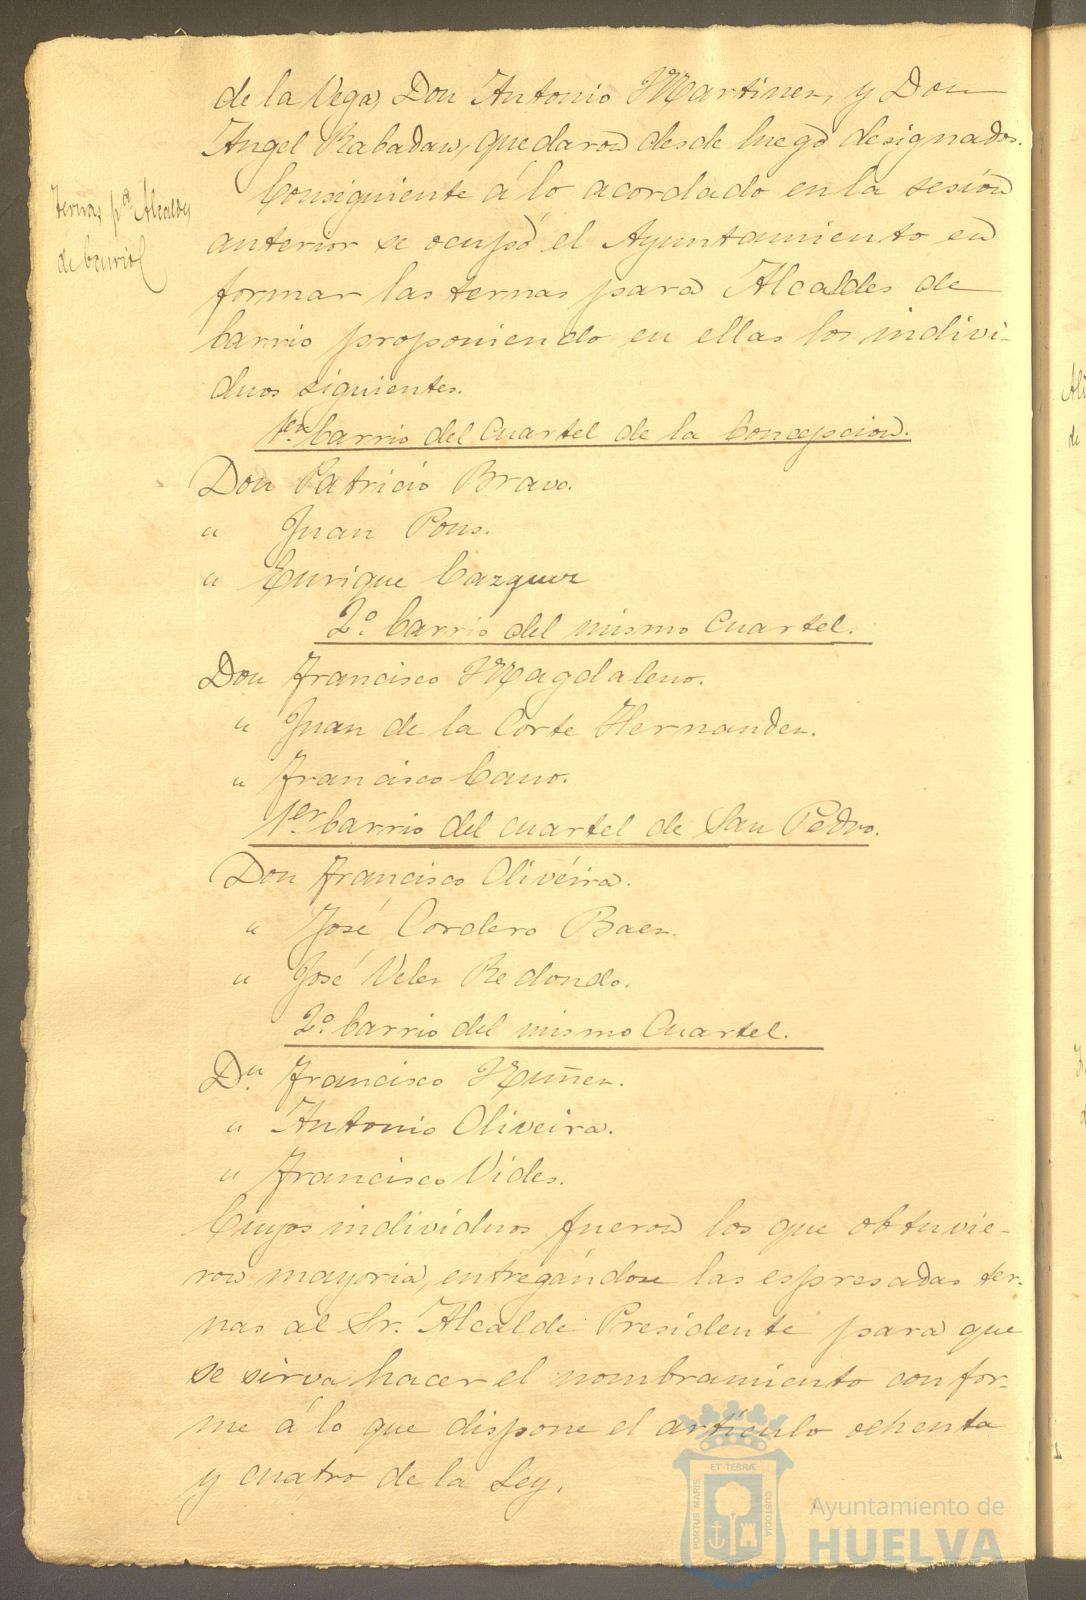 de la Vega, Don Antonio Martinez, y Don
Angel Rabadan, quedaron desde luego designados.
Ternas p.ª Alcaldes
de barrio
Consiguiente á lo acordado en la sesion
anterior se ocupó el Ayuntamiento en
formar las ternas para Alcaldes de
barrio proponiendo en ellas los indivi-
duos siguientes.
1.er barrio del Cuartel de la Concepcion.
Don Patricio Bravo.
" Juan Pons.
" Enrique Cazquez
2.º barrio del mismo Cuartel.
Don Francisco Magdaleno.
" Juan de la Corte Hernandez.
" Francisco Cano.
1.er barrio del cuartel de San Pedro.
Don Francisco Olivéira.
" José Cordero Baez.
" José Velez Redondo.
2.º barrio del mismo Cuartel.
D.n Francisco Nuñez.
" Antonio Oliveira.
" Francisco Vides.
Cuyos individuos fueron los que obtuvie-
ron mayoria, entregándose las espresadas ter-
nas al Sr. Alcalde Presidente para que
se sirva hacer el nombramiento confor-
me á lo que dispone el artículo ochenta
y cuatro de la Ley.
ET TERRÆ
PORTUS MARIS
CUSTODIA
Ayuntamiento de
HUELVA